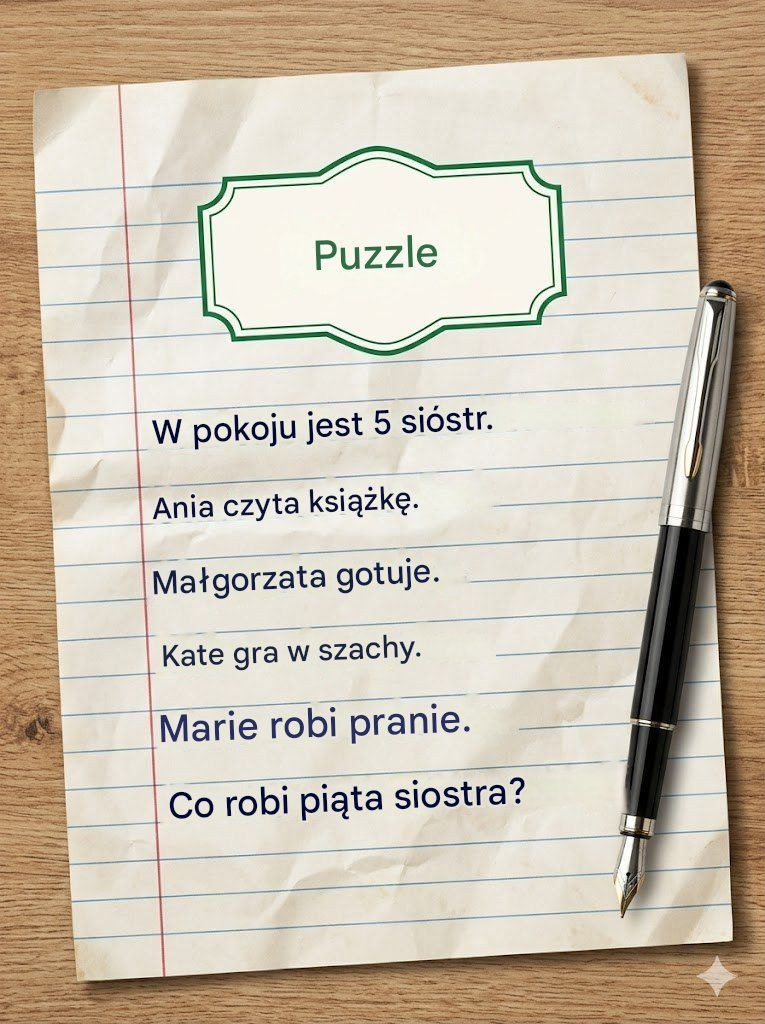 Puzzle
W pokoju jest 5 sióstr.
Ania czyta książkę.
Małgorzata gotuje.
Kate gra w szachy.
Marie robi pranie.
Co robi piąta siostra?